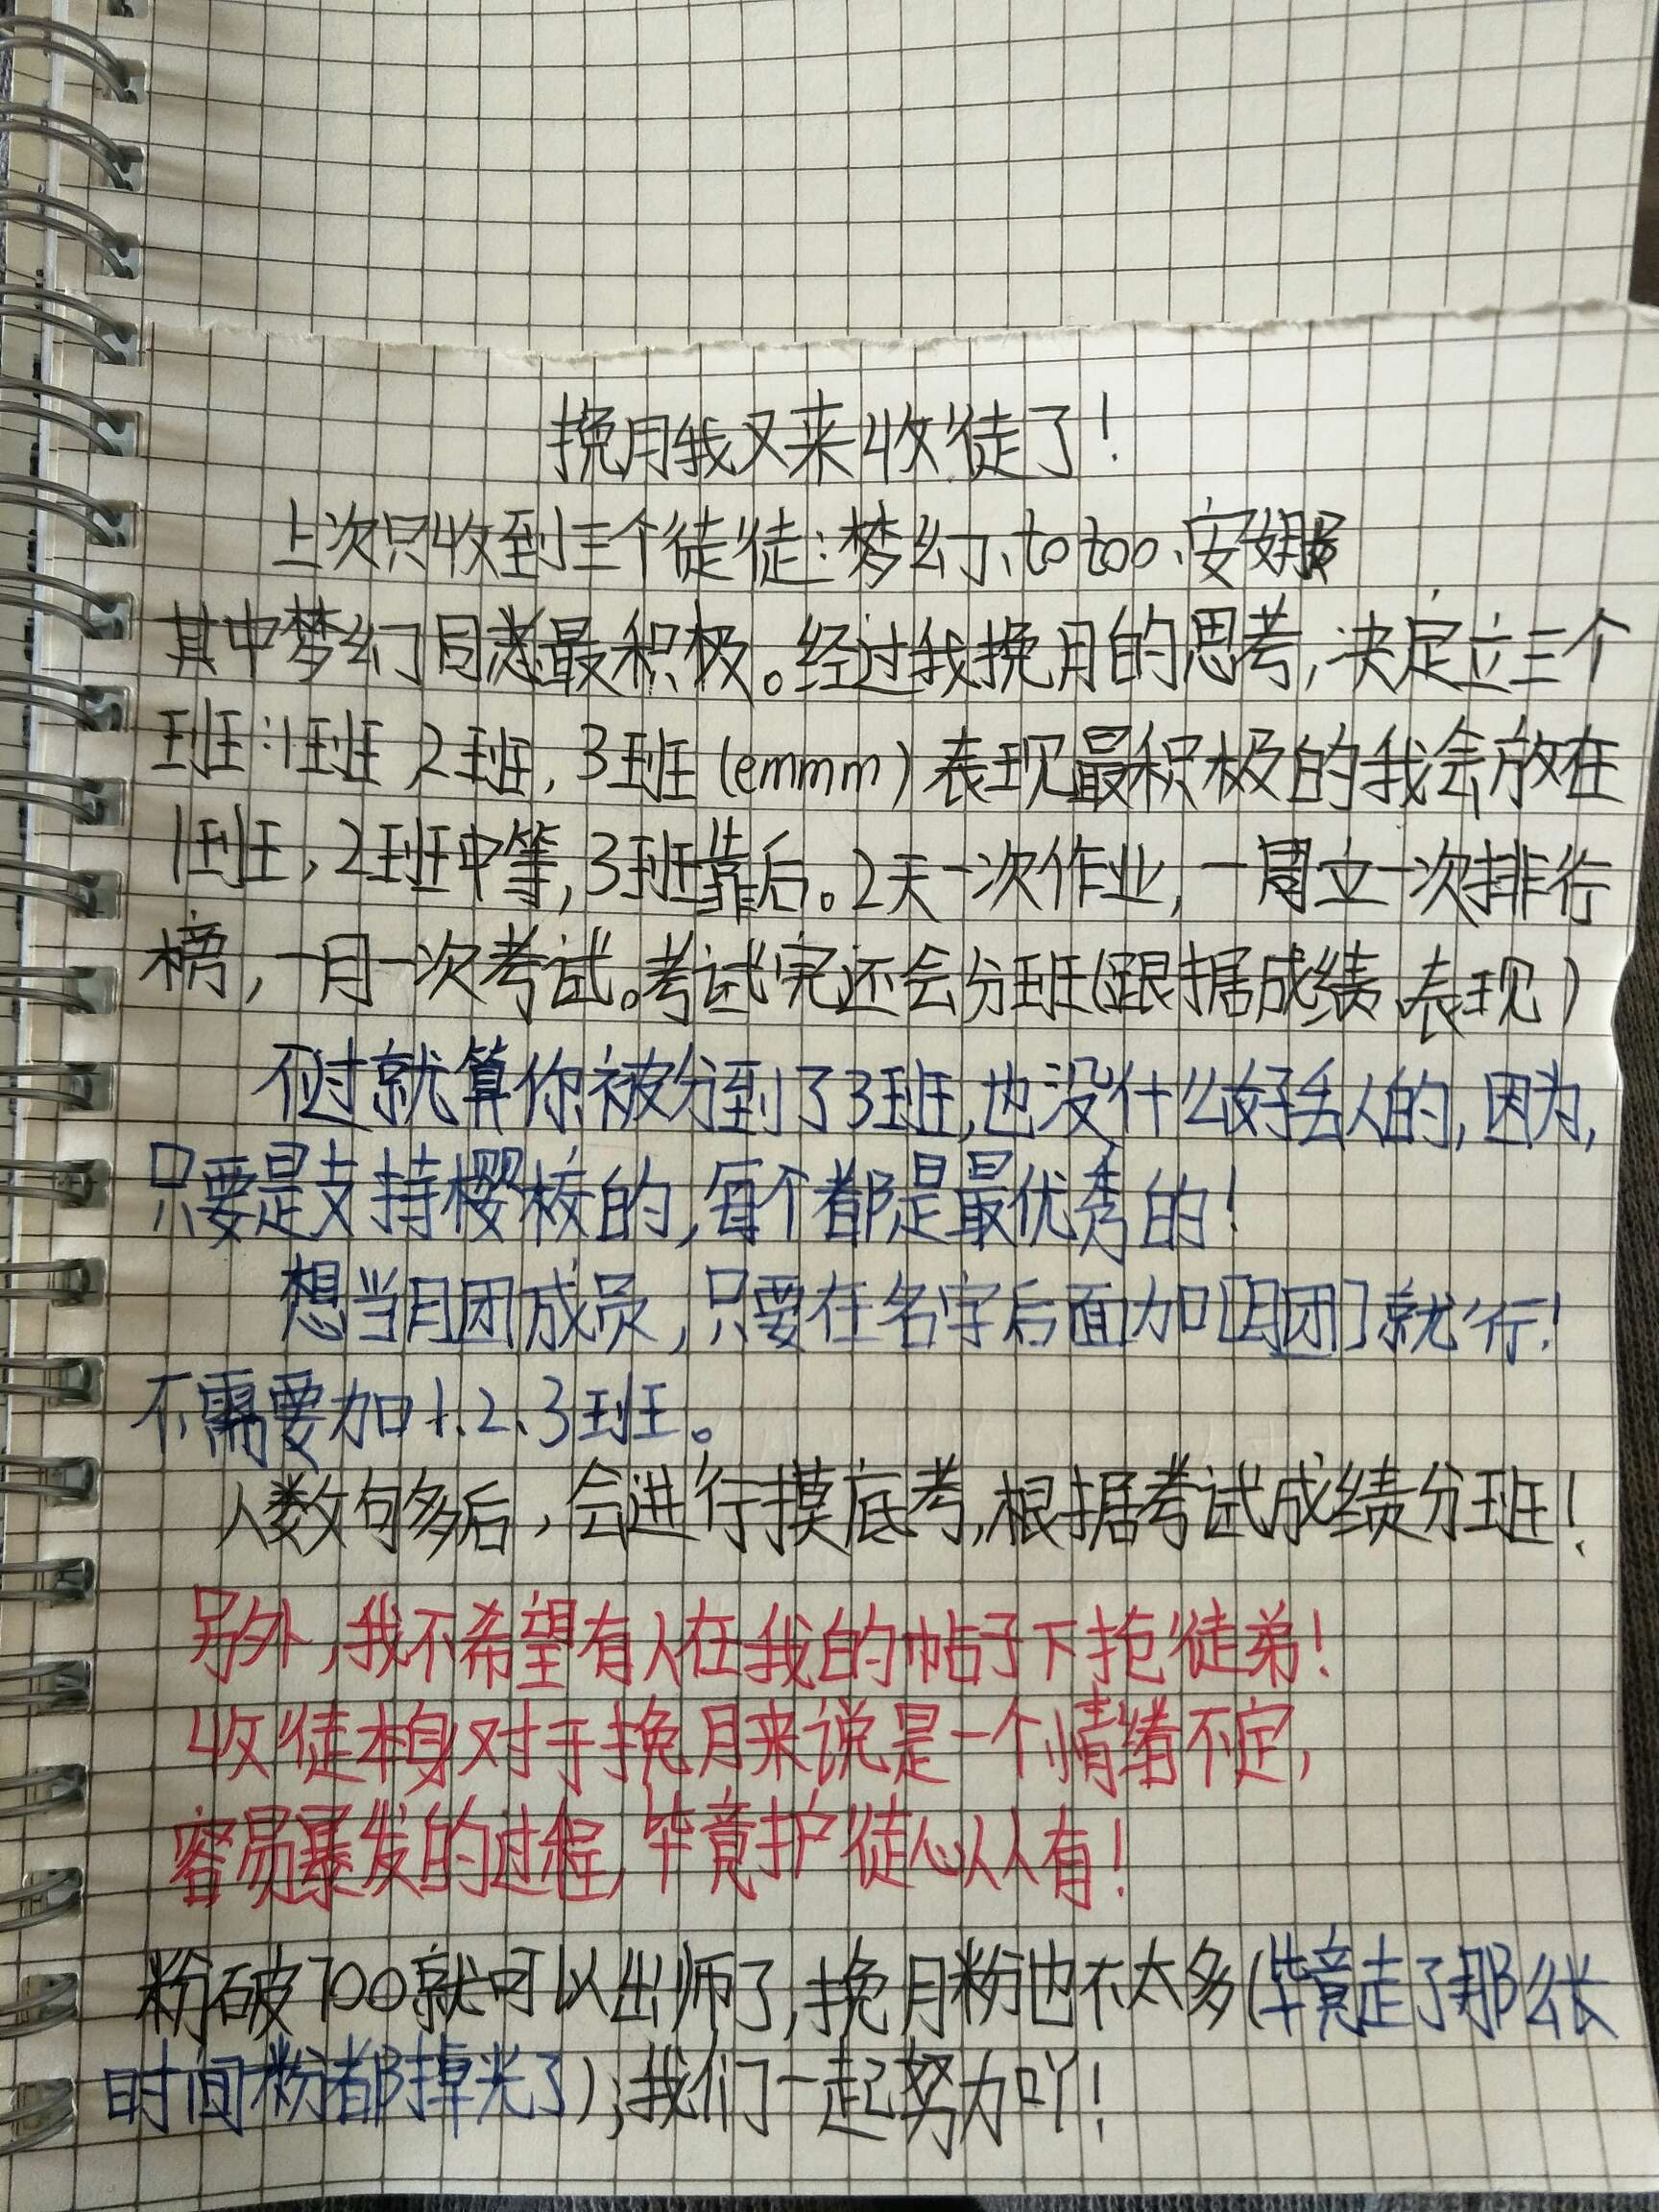 挽月我又来收徒了！
上次只收到三个徒徒：梦幻、to too、安
其中梦幻同志最积极。经过我挽月的思考，决定立三个
班：1班，2班，3班（emmm）表现最积极的我会放在
1班，2班中等，3班靠后。2天一次作业，一周立一次排行
榜，一月一次考试。考试完还会分班（跟据成绩、表现）
不过就算你被分到了3班，也没什么好丢人的，因为，
只要是支持樱校的，每个都是最优秀的！
想当月团成员，只要在名字后面加[月团]就行！
不需要加1、2、3班。
人数够多后，会进行摸底考，根据考试成绩分班！
另外，我不希望有人在我的帖子下抢徒弟！
收徒本身对于挽月来说是一个情绪不定，
容易暴发的过程，毕竟护徒心人人有！
粉破700就可以出师了，挽月粉也不太多（毕竟走了那么长
时间粉都掉光了），我们一起努力吖！